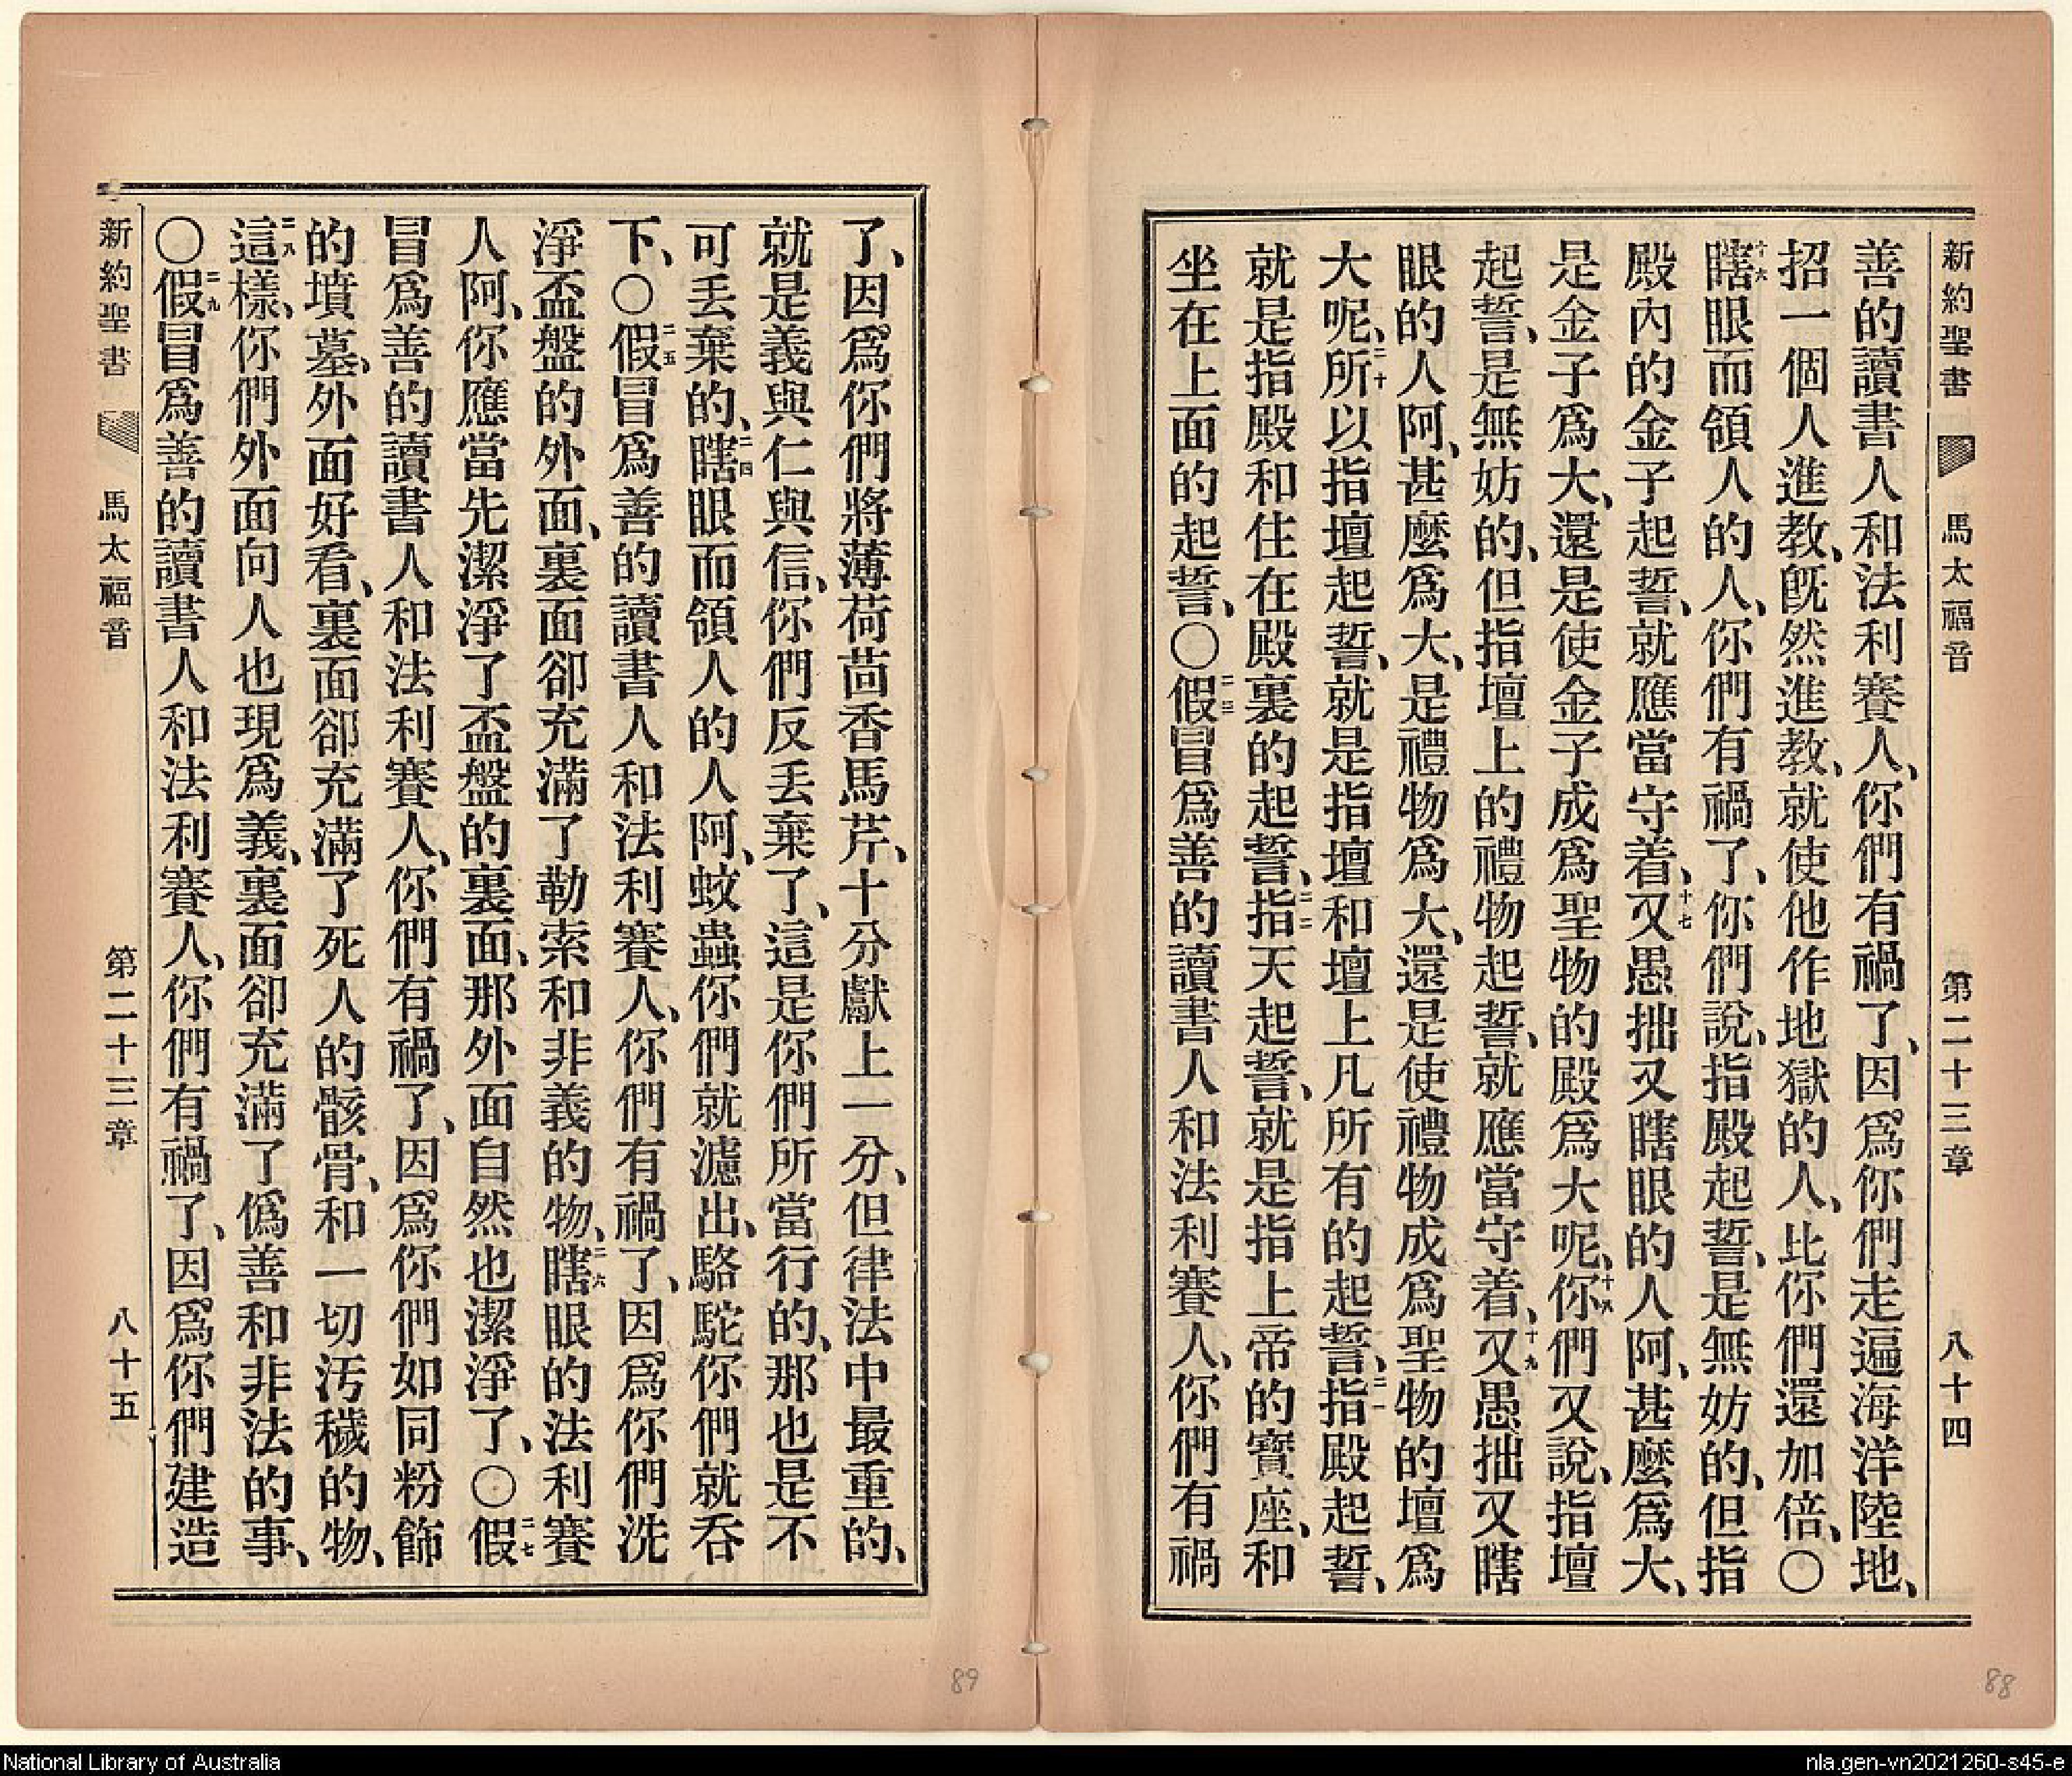 新約聖書 馬太福音 第二十三章 八十四
善的讀書人和法利賽人、你們有禍了、因爲你們走遍海洋陸地、
招一個人進教、旣然進教、就使他作地獄的人、比你們還加倍、〇
十六瞎眼而領人的人、你們有禍了、你們說、指殿起誓、是無妨的、但指
殿內的金子起誓、就應當守着、十七又愚拙又瞎眼的人阿、甚麼爲大、
是金子爲大、還是使金子成爲聖物的殿爲大呢、十八你們又說、指壇
起誓、是無妨的、但指壇上的禮物起誓、就應當守着、十九又愚拙又瞎
眼的人阿、甚麼爲大、是禮物爲大、還是使禮物成爲聖物的壇爲
大呢、二十所以指壇起誓、就是指壇和壇上凡所有的起誓、二一指殿起誓、
就是指殿和住在殿裏的起誓、二二指天起誓、就是指上帝的寶座、和
坐在上面的起誓、〇二三假冒爲善的讀書人和法利賽人、你們有禍
了、因爲你們將薄荷茴香馬芹、十分獻上一分、但律法中最重的、
就是義與仁與信、你們反丟棄了、這是你們所當行的、那也是不
可丟棄的、二四瞎眼而領人的人阿、蚊蟲你們就濾出、駱駝你們就吞
下、〇二五假冒爲善的讀書人和法利賽人、你們有禍了、因爲你們洗
淨盃盤的外面、裏面卻充滿了勒索和非義的物、二六瞎眼的法利賽
人阿、你應當先潔淨了盃盤的裏面、那外面自然也潔淨了、〇二七假
冒爲善的讀書人和法利賽人、你們有禍了、因爲你們如同粉飾
的墳墓、外面好看、裏面卻充滿了死人的骸骨、和一切汚穢的物、
二八這樣、你們外面向人也現爲義、裏面卻充滿了僞善和非法的事、
〇二九假冒爲善的讀書人和法利賽人、你們有禍了、因爲你們建造
新約聖書 馬太福音 第二十三章 八十五
89
88
National Library of Australia
nla.gen-vn2021260-s45-e